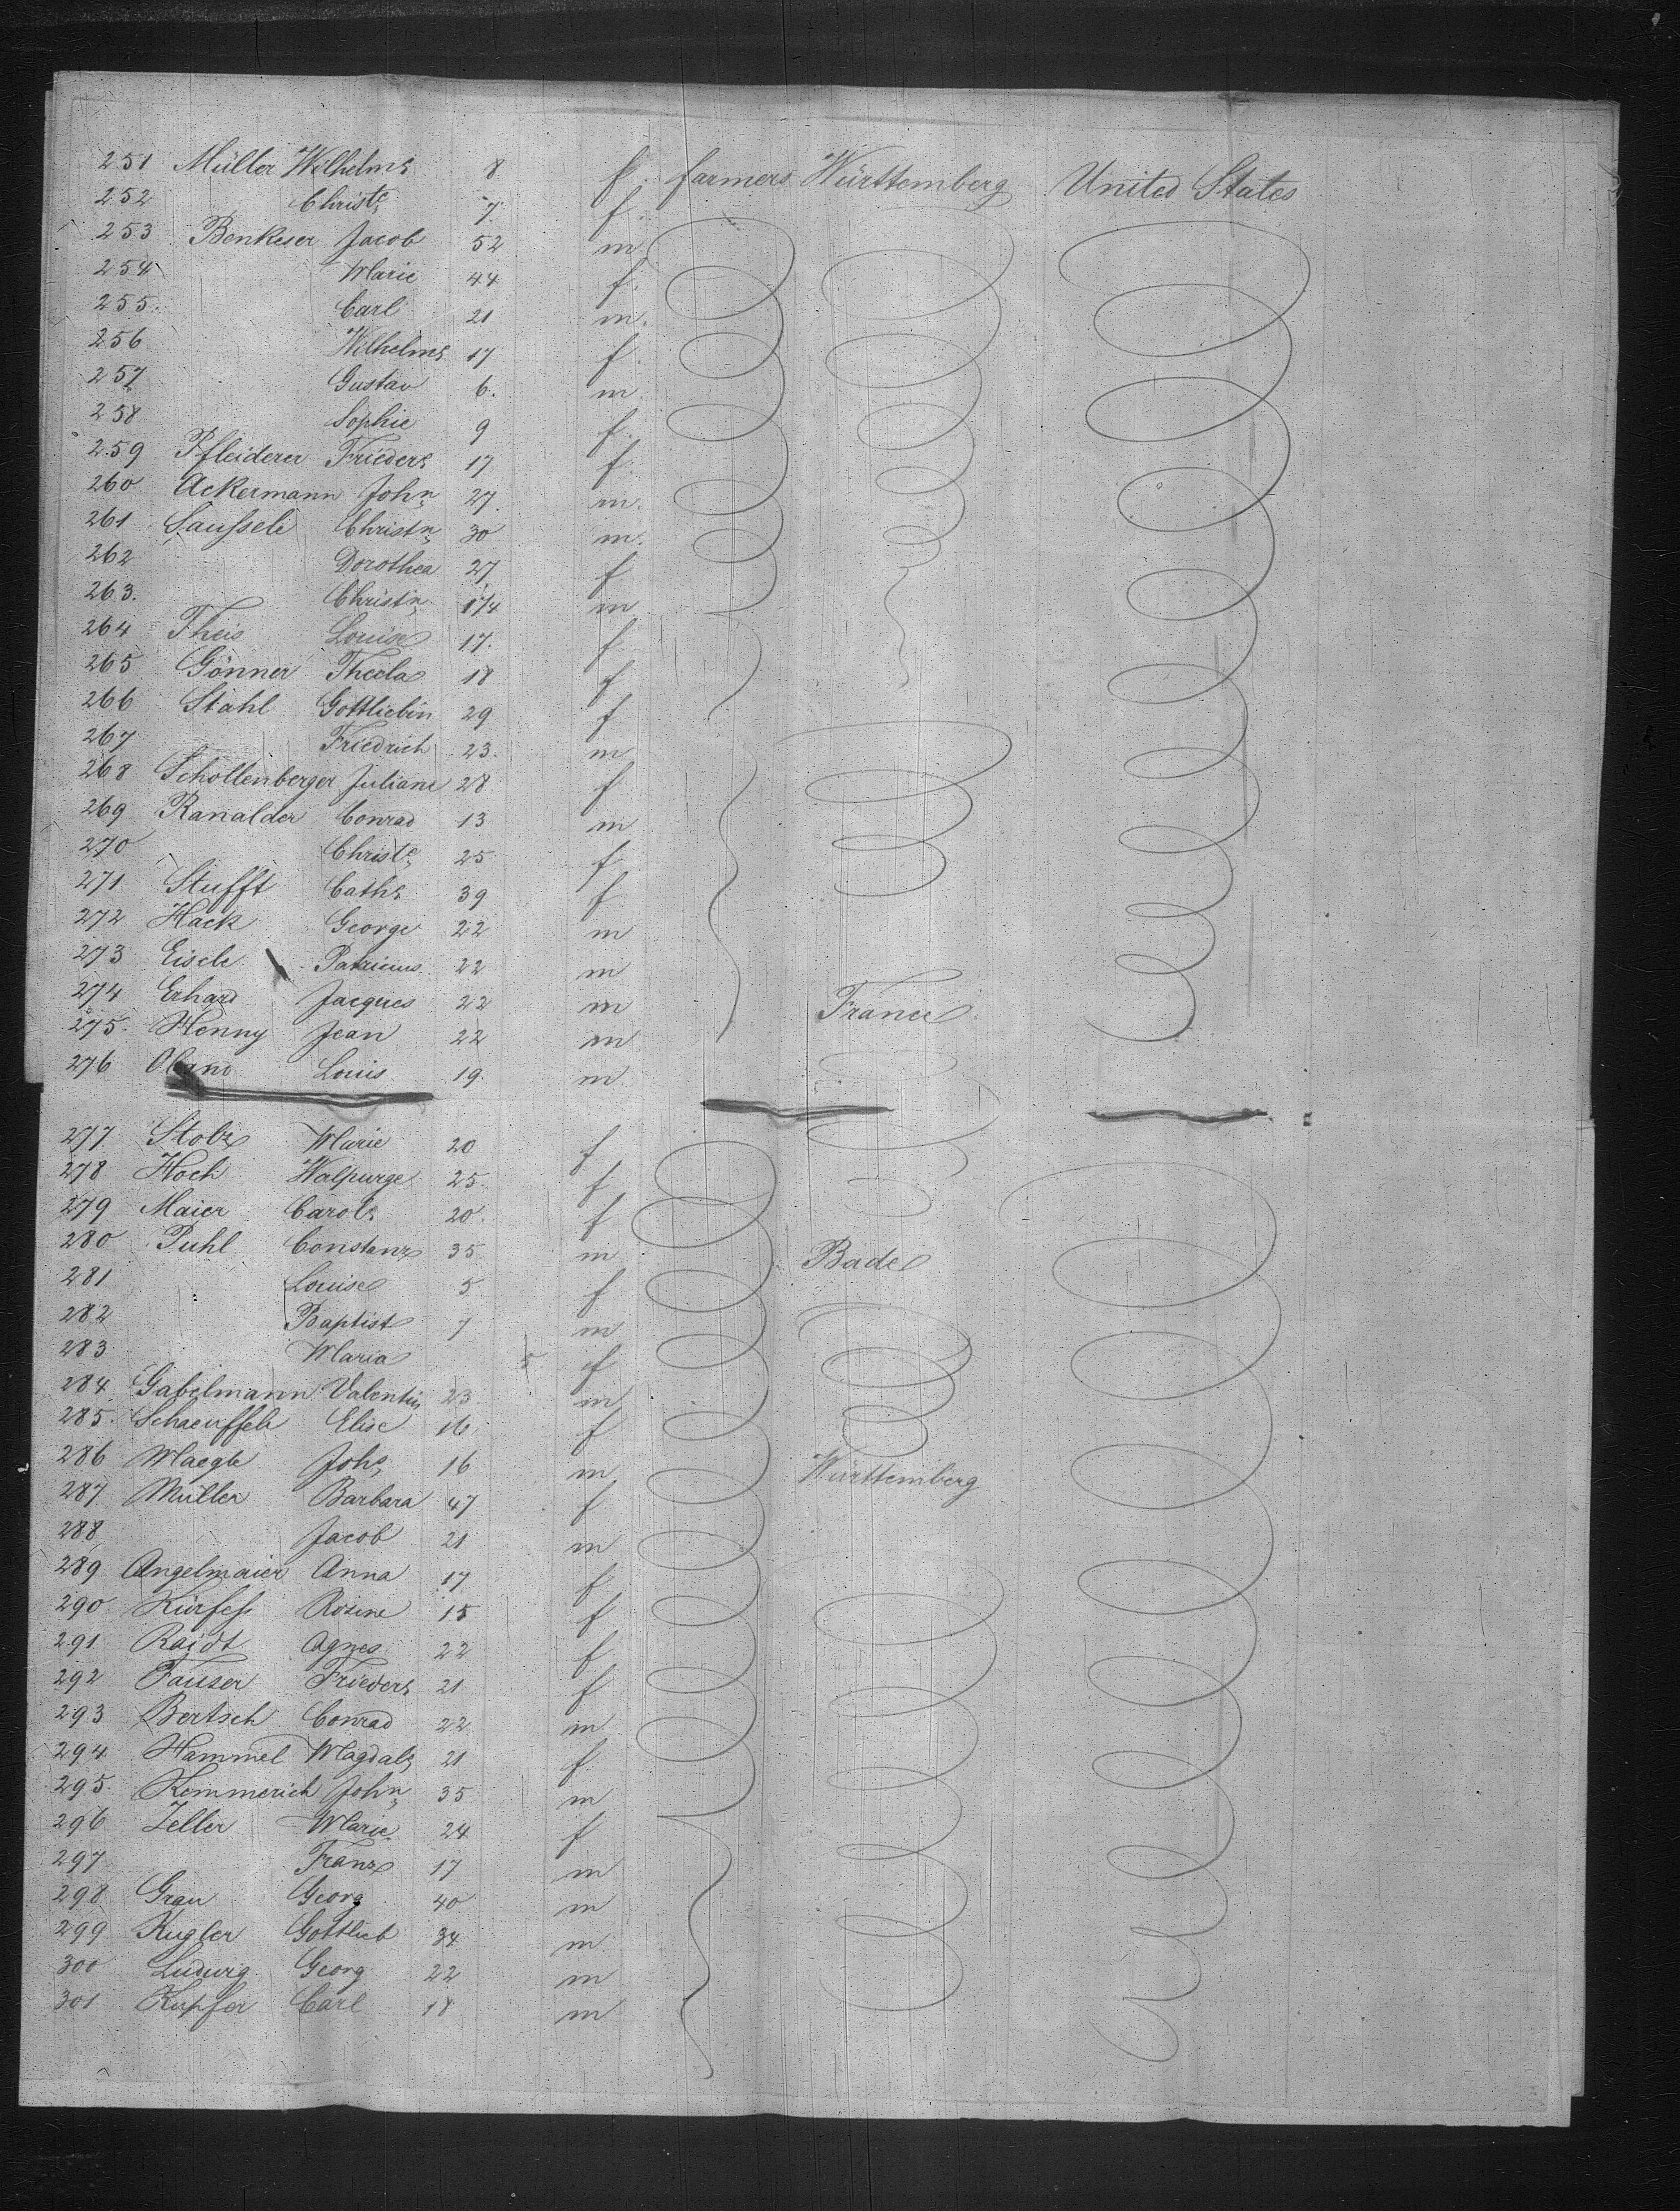 251 Müller Wilhelme 8 f. farmers Württemberg United States
252 Christe 7. f.
253 Benkeser Jacob 52 m
254 Marie 44 f.
255. Carl 21 m.
256 Wilhelme 17 f
257 Gustav 6. m.
258 Sophie 9 f.
259 Pfleiderer Frieders 17 f.
260 Ackermann John 27. m.
261 Saussele Christn 30 m.
262 Dorothea 27 f
263. Christn m
264 Theis Louise 17. f
265 Gönner Thecla 18 f
266 Stahl Gottliebin 29 f
267 Friedrich 23. m
268 Schollenberger Juliane 28 f
269 Ranalder Conrad 13 m
270 Christe 25 f
271 Stufft Caths 39 f
272 Hack George 22 m
273 Eisele Patricius 22 m
274 Erhard Jacques 22 m France
275. Henny Jean 22 m
276 Louis 19. m
277 Stolz Marie 20 f
278 Hoch Walpurge 25. f
279 Maier Carols 20. f
280 Puhl Constanz 35 m Bade
281 Louise 5 f
282 Baptist 7 m
283 Maria 5 f
284 Gabelmann Valentin 23 m
285. Schaeuffele Elise 16 f
286 Maegle Johs 16 m
Württemberg
287 Müller Barbara 47 f
288 Jacob 21 m
289 Angelmaier Anna 17 f
290 Kürfess Rosine 15 f
291 Raidt Agnes 22 f
292 Fauser Frieders 21 f
293 Bertsch Conrad 22 m
294 Hammel Magdals 21 f
295. Kemmerich John 35 m
296 Zeller Marie 24 f
297 Franz 17 m
298 Grau Georg 40 m
299 Kugler Gottlieb 34 m
300 Ludwig Georg 22 m
301 Kupfer Carl 18 m